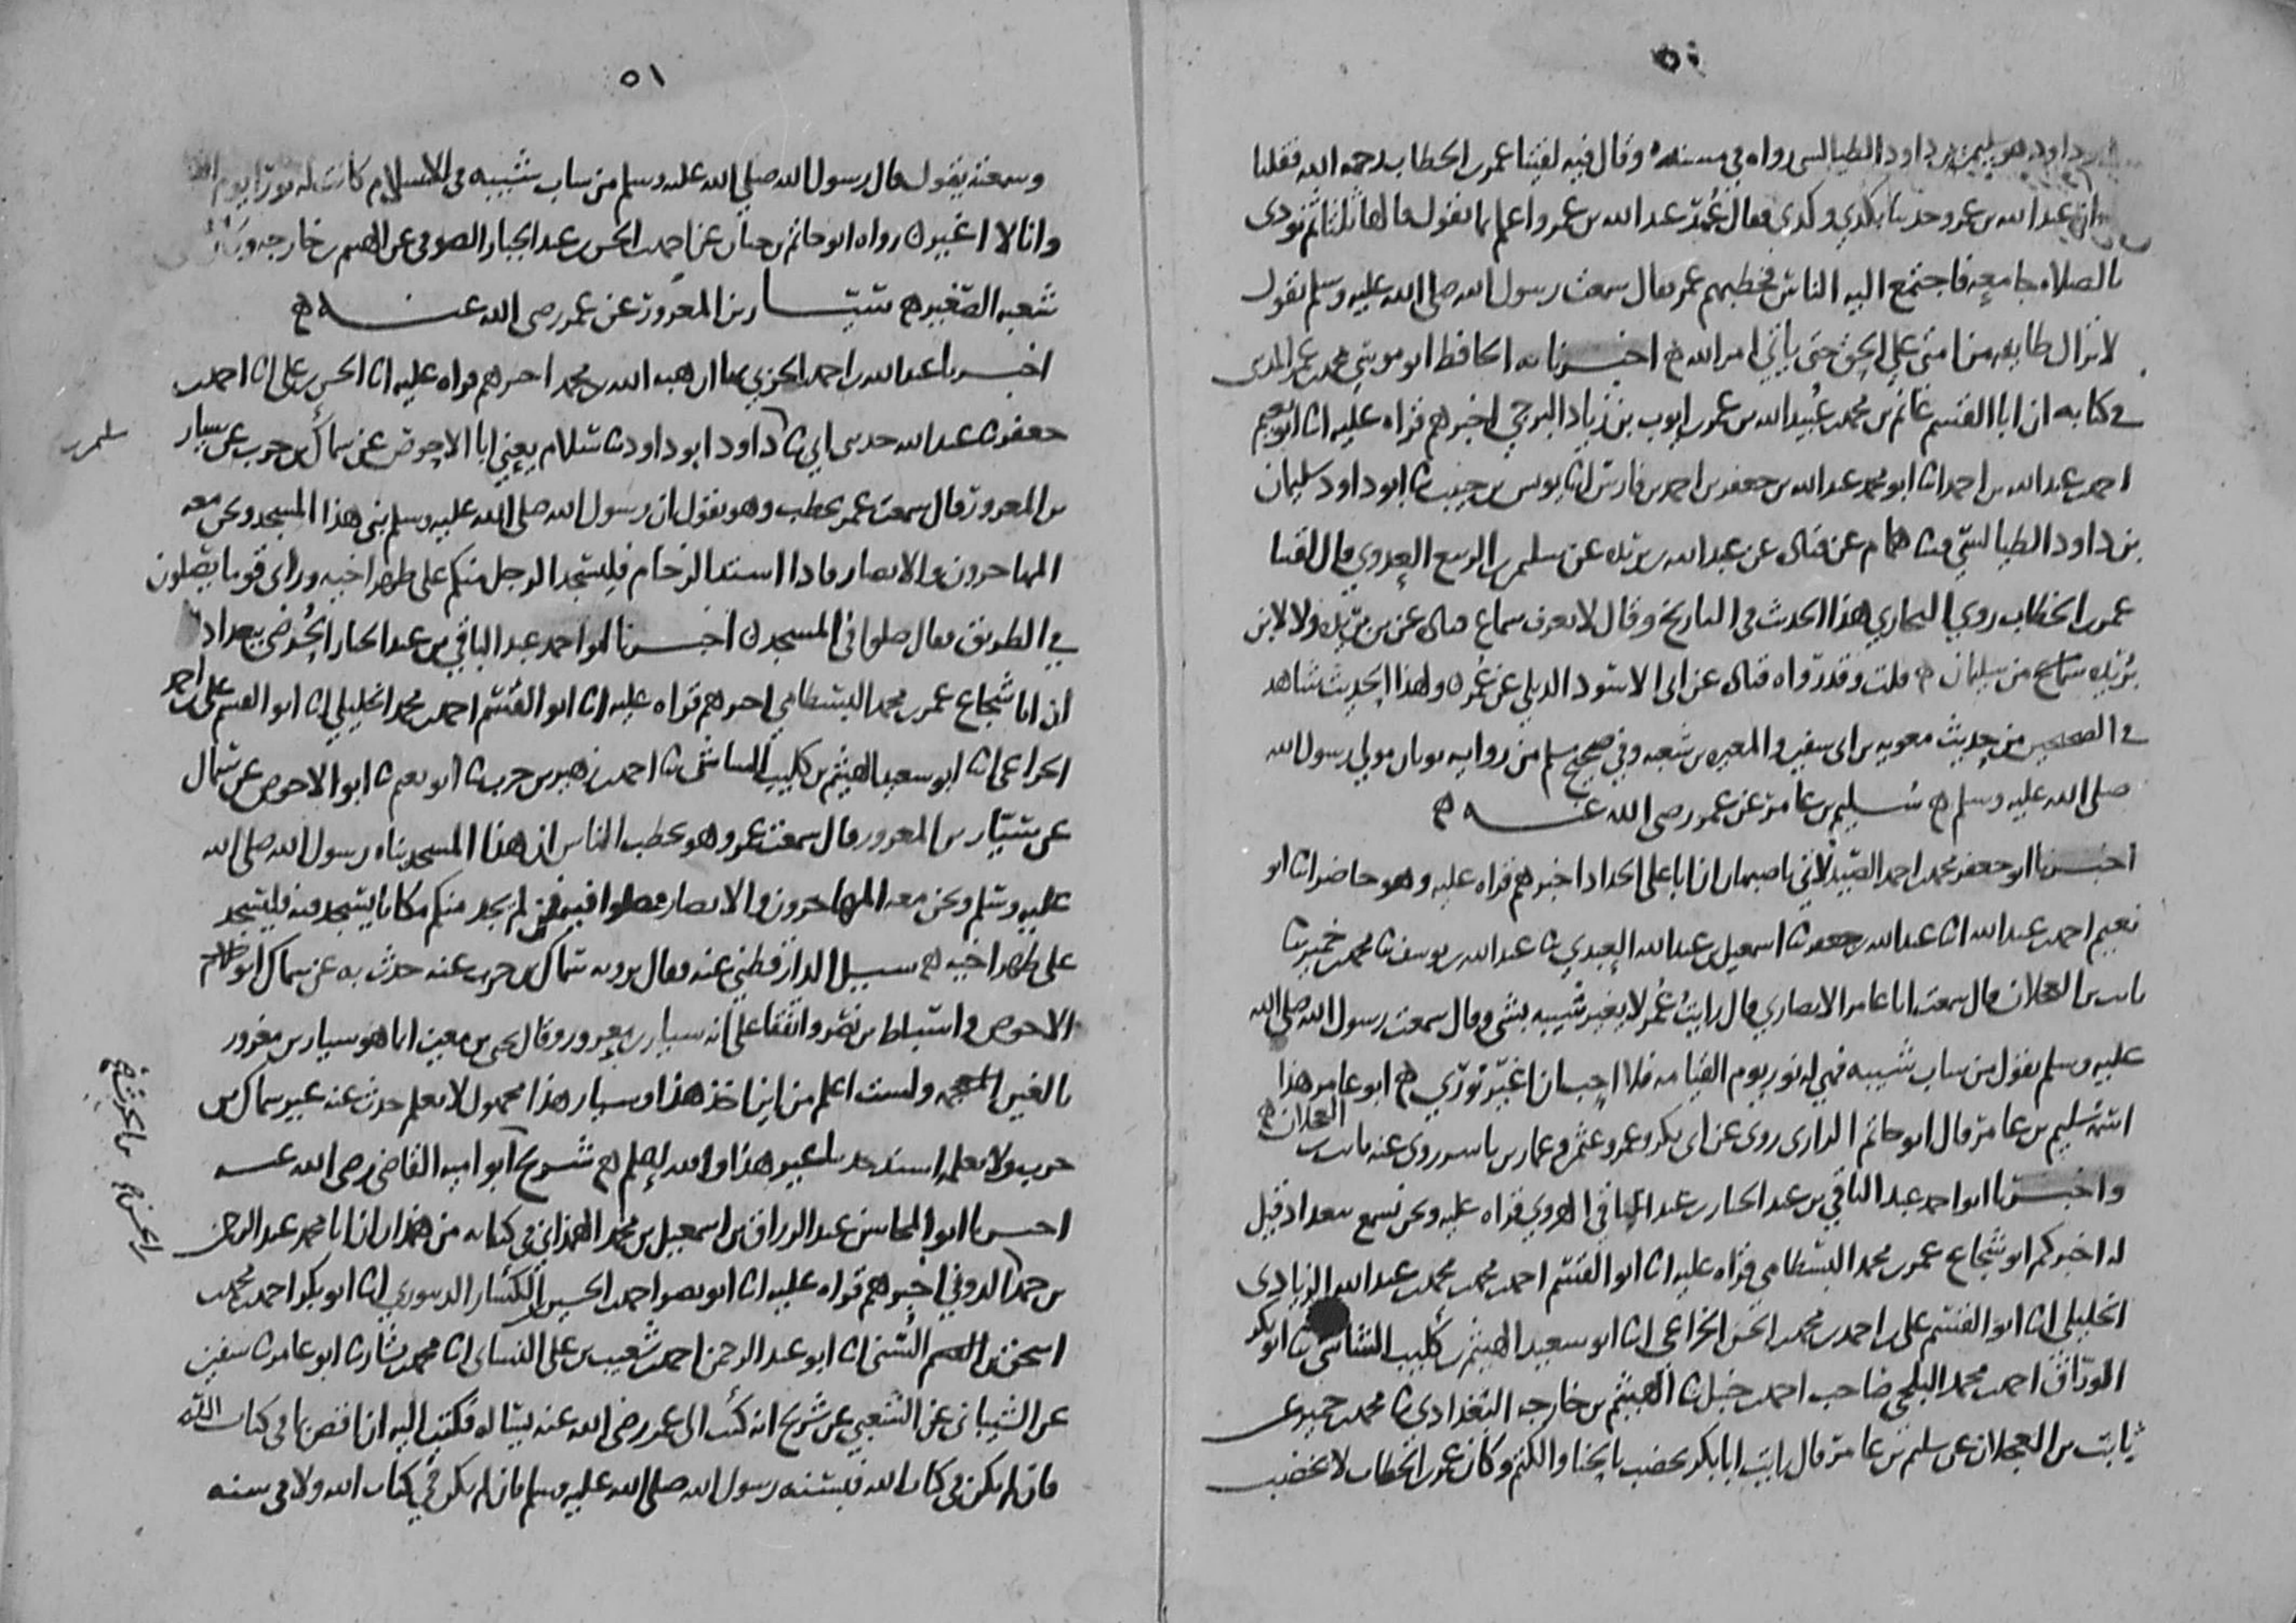 ٥٠
داود هو سليمن بن داود الطيالسي رواه في مسنده وقال فيه لقينا عمر بن الخطاب رحمه الله فقلنا
ان عبد الله بن عمرو حدثنا بكذي وكذي فقال عمر عبد الله بن عمرو اعلم بما يقول قالها ثلثا ثم نودى
بالصلاه جامعه فاجتمع اليه الناس فخطبهم عمر فقال سمعت رسول الله صلى الله عليه وسلم يقول
لا تزال طايفه من امتي على الحق حتى ياتي امر الله اخبرنا به الحافظ ابو موسى محمد بن عمر المديني
في كتابه ان ابا القسم غانم بن محمد بن عبيد الله بن عمر بن ايوب بن زياد البرجي اخبرهم قراه عليه انا ابو نعيم
احمد بن عبد الله بن احمد انا ابو محمد عبد الله بن جعفر بن احمد بن فارس انا يونس بن حبيب ثنا ابو داود سليمان
بن داود الطيالسي ثنا همام عن قتاده عن عبد الله بن بريده عن سليمن بن الربيع العدوي قال لقينا
عمر بن الخطاب روي البخاري هذا الحديث في التاريخ وقال لا يعرف سماع قتاده عن بن بريده ولا لابن
بريده سماع من سليمان قلت وقد رواه قتاده عن ابي الاسود الديلي عن عمر ولهذا الحديث شاهد
في الصحيحين من حديث معويه بن ابي سفين والمغيره بن شعبه وفي صحيح مسلم من روايه ثوبان مولي رسول الله
صلى الله عليه وسلم سليم بن عامر عن عمر رضى الله عنه
اخبرنا ابو جعفر محمد بن احمد الصيدلاني باصبهان ان ابا على الحداد اخبرهم قراه عليه وهو حاضر انا ابو
نعيم احمد بن عبد الله انا عبد الله بن جعفر ثنا اسمعيل بن عبد الله العبدي ثنا عبد الله بن يوسف ثنا محمد بن حمير ثنا
ثابت بن العجلان قال سمعت ابا عامر الانصاري قال رايت عمر لا يغير شيبه بشى وقال سمعت رسول الله صلى الله
عليه وسلم يقول من شاب شيبه فهي له نور يوم القيامه فلا احب ان اغير نوري ابو عامر هذا
اسمه سليم بن عامر قال ابو حاتم الرازى روى عن ابى بكر وعمر وعثمن وعمار بن ياسر روى عنه ثابت بن العجلان
واخبرنا ابو احمد عبد الباقي بن عبد الجبار بن عبد الباقي الهروي قراه عليه ونحن نسمع ببغداد قيل
له اخبركم ابو شجاع عمر بن محمد البسطامي قراه عليه انا ابو القسم احمد بن محمد بن محمد بن عبد الله الزيادى
الخليلي انا ابو القسم على بن احمد بن محمد بن الحسن الخزاعي انا ابو سعيد الهيثم بن كليب الشاشي ثنا ابو بكر
الوراق احمد بن محمد البلخي صاحب احمد بن حنبل ثنا الهيثم بن خارجه البغدادي ثنا محمد بن حمير عن
ثابت بن العجلان عن سليم بن عامر قال رايت ابا بكر يخضب بالحنا والكتم وكان عمر بن الخطاب لا يخضب
٥١
وسمعته يقول قال رسول الله صلى الله عليه وسلم من شاب شيبه في الاسلام كانت له نورا يوم القيمه
وانا لا اغير رواه ابو حاتم بن حبان عن احمد بن الحسن بن عبد الجبار الصوفي عن الهيثم بن خارجه
شعبه الصغير سيار بن المعرور عن عمر رضى الله عنه
اخبرنا عبد الله بن احمد الحربي بها ان هبه الله بن محمد اخبرهم قراه عليه انا الحسن بن على انا احمد بن
جعفر ثنا عبد الله حدثني ابي ثنا سليمن بن داود ابو داود ثنا سلام يعني ابا الاحوص عن سماك بن حرب عن سيار
بن المعرور قال سمعت عمر يخطب وهو يقول ان رسول الله صلى الله عليه وسلم بنى هذا المسجد ونحن معه
المهاجرون والانصار فاذا اشتد الزحام فليسجد الرجل منكم على ظهر اخيه وراى قوما يصلون
في الطريق فقال صلوا في المسجد اخبرنا ابو احمد عبد الباقي بن عبد الجبار الحرضي ببغداد
ان ابا شجاع عمر بن محمد البسطامي اخبرهم قراه عليه انا ابو القسم احمد بن محمد الخليلي انا ابو القسم على بن احمد
الخزاعي انا ابو سعيد الهيثم بن كليب الشاشي ثنا احمد بن زهير بن حرب ثنا ابو نعيم ثنا ابو الاحوص عن سماك
عن سيار بن المعرور قال سمعت عمر وهو يخطب الناس ان هذا المسجد بناه رسول الله صلى الله
عليه وسلم ونحن معه المهاجرون والانصار فصلوا فيه فمن لم يجد منكم مكانا يسجد فيه فليسجد
على ظهر اخيه سيل الدارقطني عنه فقال يرويه سماك بن حرب عنه حدث به عن سماك ابو
الاحوص واسباط بن نصر واتفقا على انه سيار بن معرور وقال يحيى بن معين انما هو سيار بن مغرور
بالغين المعجمه ولست اعلم من اين اخذ هذا وسيار هذا مجهول لا يعلم حدث عنه غير سماك بن
حرب ولا نعلمه اسند حديثا غير هذا والله اعلم شريح ابو اميه القاضي رضى الله عنه
اخبرنا ابو المحاسن عبد الرزاق بن اسمعيل بن محمد الهمذاني في كتابه من همذان ان ابا محمد عبد الرحمن
بن حمد الدوني اخبرهم قراه عليه انا ابو نصر احمد بن الحسين الكسار الدينوري انا ابو بكر احمد بن محمد بن
اسحق السني انا ابو عبد الرحمن احمد بن شعيب بن على النساى انا محمد بن بشار ثنا ابو عامر ثنا سفين
عن الشيباني عن الشعبي عن شريح انه كتب الى عمر رضى الله عنه يساله فكتب اليه ان اقض بما في كتاب الله
فان لم يكن في كتاب الله فبسنه رسول الله صلى الله عليه وسلم فان لم يكن في كتاب الله ولا في سنه